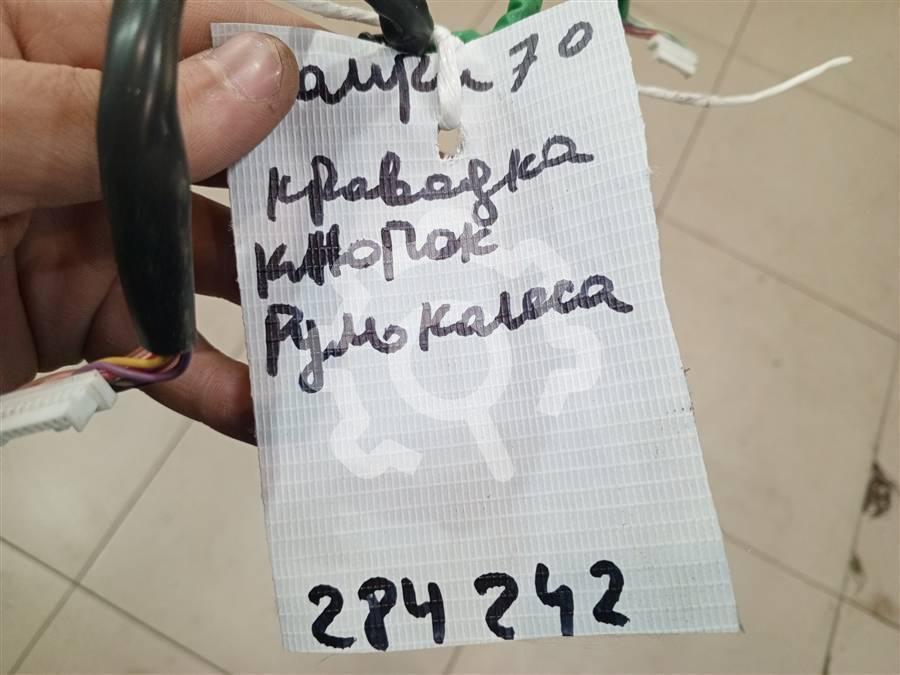 Камри 70
кравадка
кнопок
Рульколеса
284 242